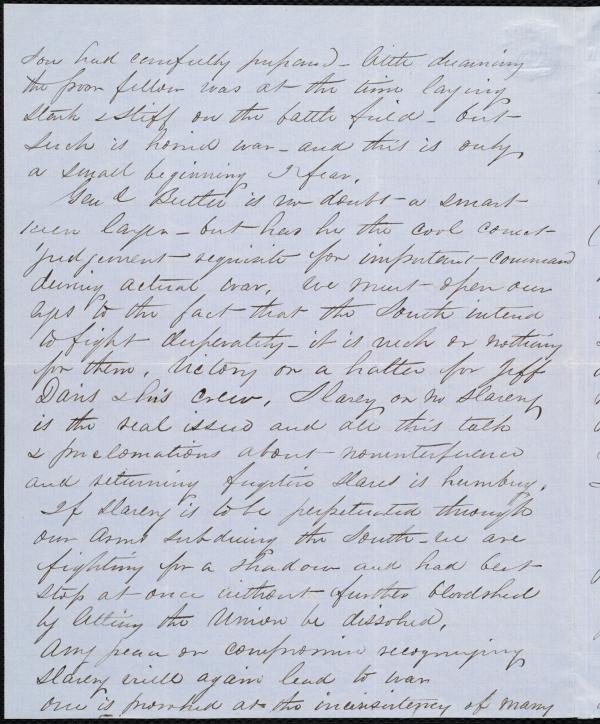 son had carefully prepared - little dreaming
the poor fellow was at the time laying
stark & stiff on the battle field - but
such is horrid war - and this is only
a small beginning I fear.
Genl Butler is no doubt - a smart
keen lawyer - but has he the cool correct
judgement requisite for important command
during actual war. We must open our
eyes to the fact that the South intend
to fight desperately - it is neck or nothing
for them, victory or a halter for Jeff
Davis & his crew. Slavery or no slavery
is the real issue and all this talk
& proclamations about noninterference
and returning fugitive slaves is humbug.
If slavery is to be perpetuated through
our Arms subduing the South - we are
fighting for a shadow and had best
stop at once without further bloodshed
by letting the Union be dissolved.
Any peace or compromise recognizing
slavery will again lead to war
one is at the inconsistency of many